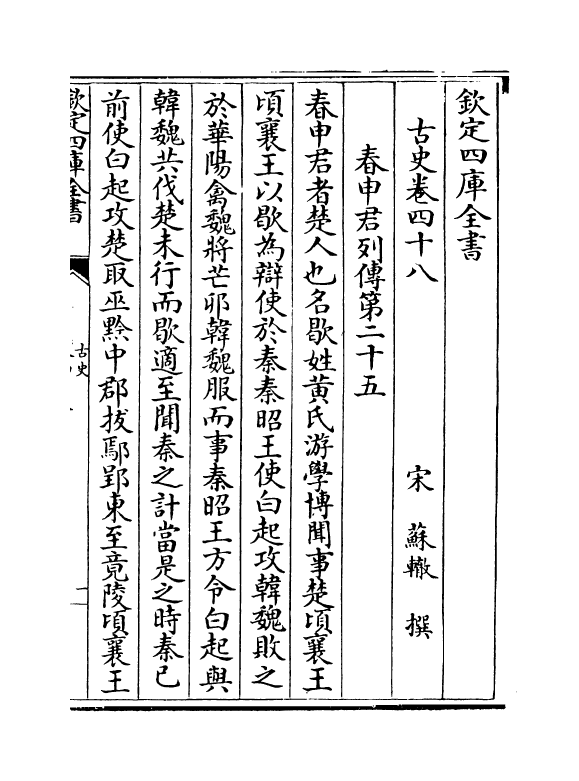 欽定四庫全書
古史卷四十八　宋　蘇轍　撰
春申君列傳第二十五
春申君者楚人也名歇姓黄氏游學博聞事楚頃襄王
頃襄王以歇為辯使於秦秦昭王使白起攻韓魏敗之
於華陽禽魏將芒卯韓魏服而事秦昭王方令白起與
韓魏共伐楚未行而歇適至聞秦之計當是之時秦已
前使白起攻楚取巫黔中郡拔鄢郢東至竟陵頃襄王
欽定四庫全書
古史